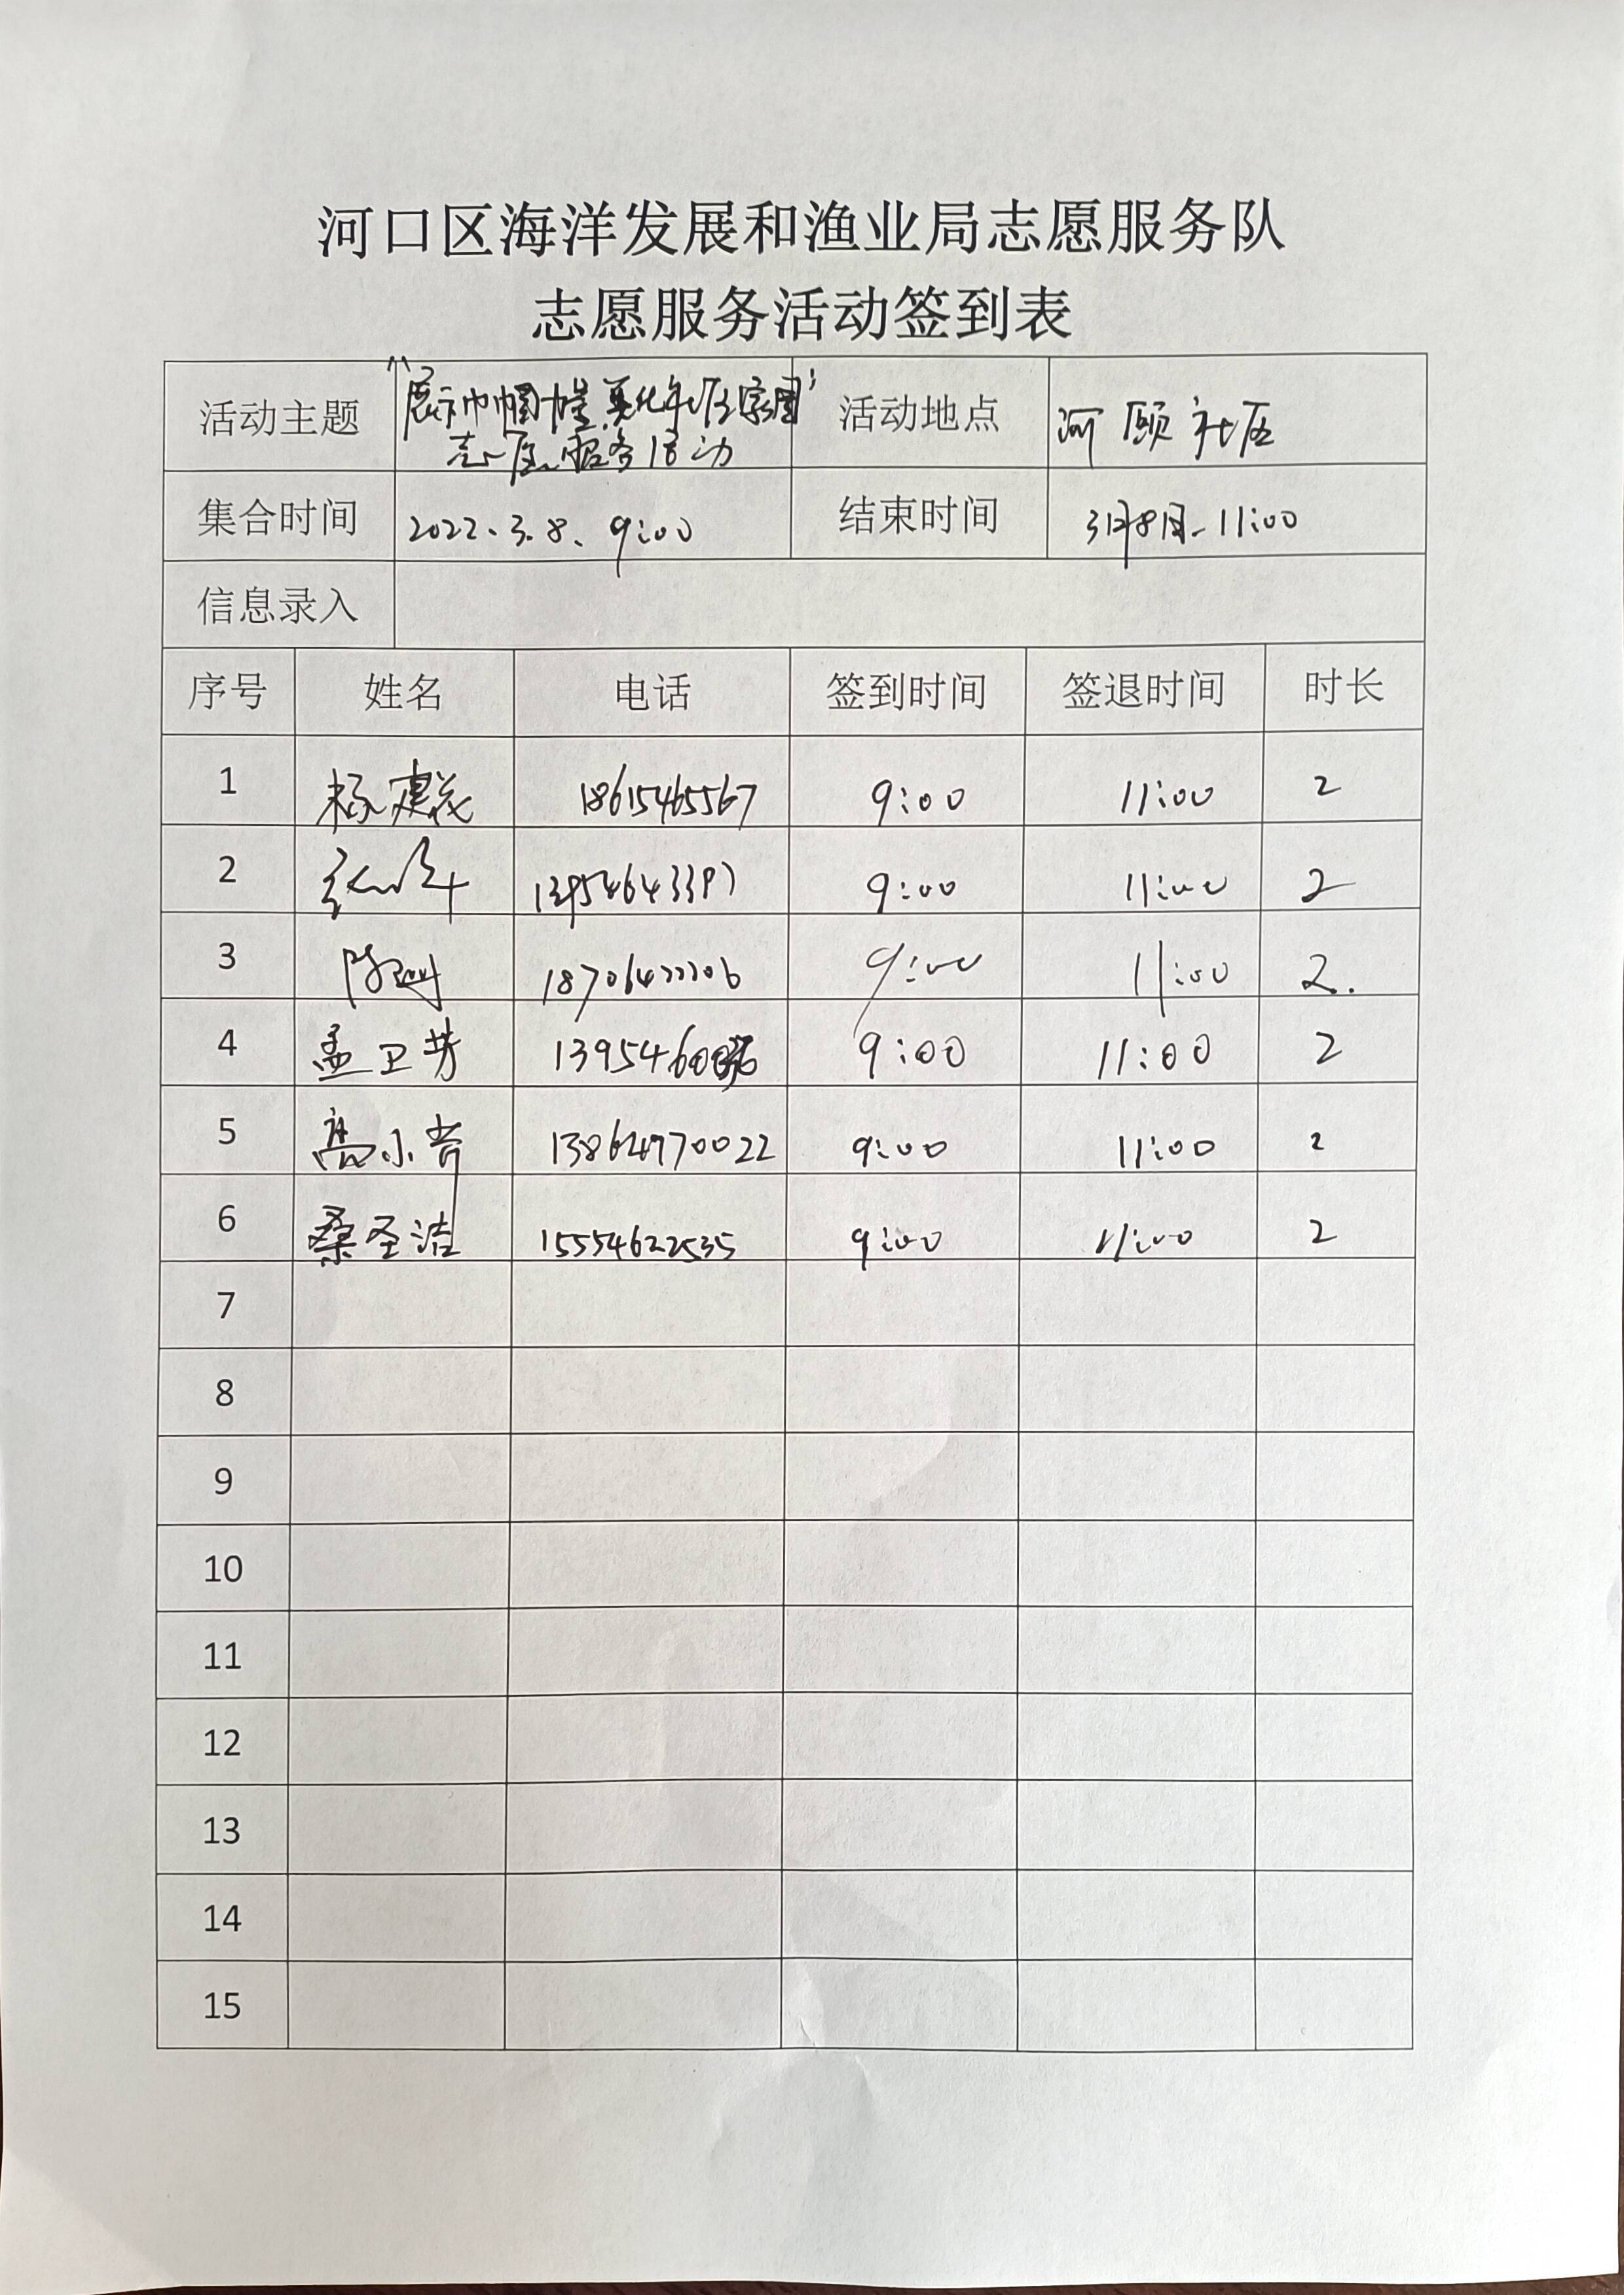 河口区海洋发展和渔业局志愿服务队
志愿服务活动签到表
活动主题 "展示巾帼力量,美化社区家园" 志愿服务活动 活动地点 河颐社区
集合时间 2022、3.8、9:00 结束时间 3月8日、11:00
信息录入
序号 姓名 电话 签到时间 签退时间 时长
1 杨建 18615465567 9:00 11:00 2
2 9:00 11:00 2
3 陈 9:00 11:00 2.
4 孟卫芳 9:00 11:00 2
5 高小 13864770022 9:00 11:00 2
6 桑圣洁 15554622535 9:00 11:00 2
7
8
9
10
11
12
13
14
15